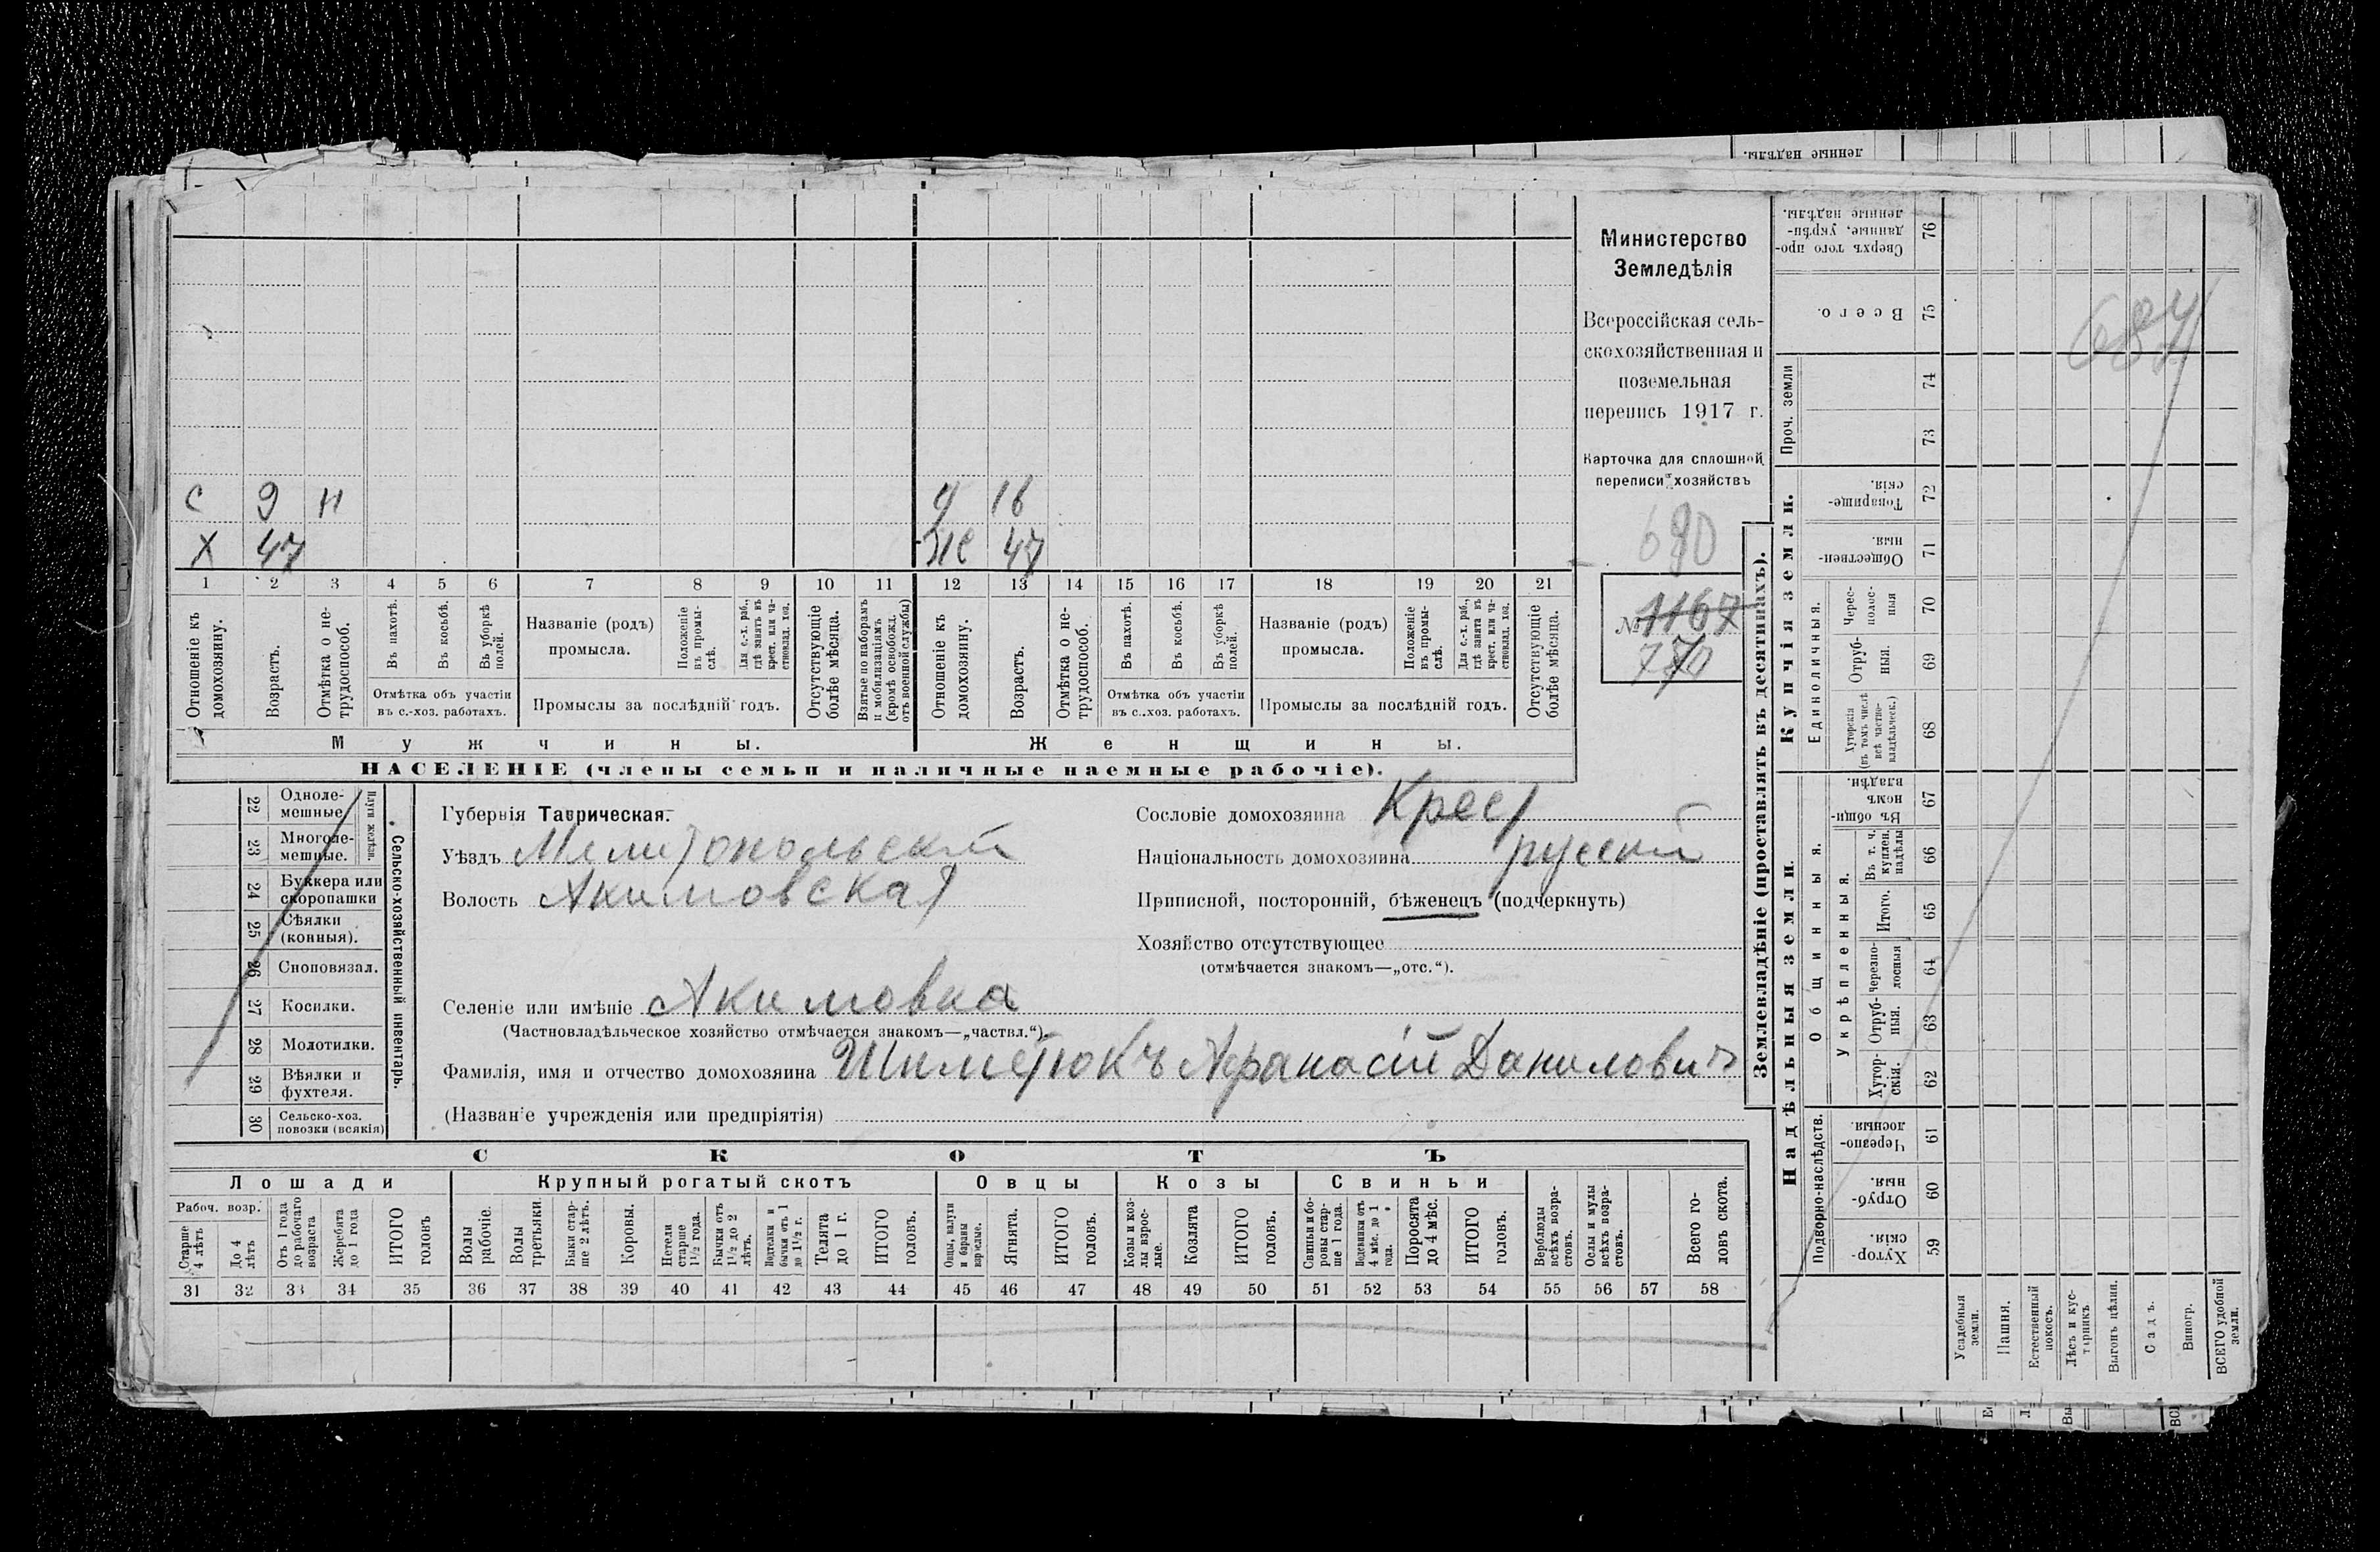 Министерство
Земледѣлія
Всероссійская сель-
скохозяйственная и
поземельная
перепись 1917 г.
Карточка для сплошной
переписи хозяйствъ
690
№ 1167
770
684
С 9 Н
Х 47
д 16
Же 47
1 2 3 4 5 6 7 8 9 10 11 12 13 14 15 16 17 18 19 20 21
Отношеніе къ домохозяину.
Возрастъ.
Отмѣтка о не-трудоспособ.
Въ пахотѣ.
Въ косьбѣ.
Въ уборкѣ полей.
Отмѣтка объ участіи
въ с.-хоз. работахъ.
Названіе (родъ)
промысла.
Положеніе въ промы-слѣ.
Для с.-х. раб., гдѣ занятъ въ крест. или ча-стновлад. хоз.
Промыслы за послѣдній годъ.
Отсутствующіе болѣе мѣсяца.
Взятые по наборамъ и мобилизаціямъ (кромѣ освобожд. отъ военной службы)
Отношеніе къ домохозяину.
Возрастъ.
Отмѣтка о не-трудоспособ.
Въ пахотѣ.
Въ косьбѣ.
Въ уборкѣ полей.
Отмѣтка объ участіи
въ с.-хоз. работахъ.
Названіе (родъ)
промысла.
Положеніе въ промы-слѣ.
Для с.-х. раб., гдѣ занята въ крест. или ча-стновлад. хоз.
Промыслы за послѣдній годъ.
Отсутствующіе болѣе мѣсяца.
Мужчины.
Женщины.
НАСЕЛЕНІЕ (члены семьи и наличные наемные рабочіе).
22 Одноле-мешные.
23 Многоле-мешные.
Плуги желѣзн.
24 Буккера или скоропашки
25 Сѣялки (конныя).
26 Сноповязал.
27 Косилки.
28 Молотилки.
29 Вѣялки и фухтеля.
30 Сельско-хоз. повозки (всякія)
Сельско-хозяйственный инвентарь.
Губернія Таврическая.
Уѣздъ Мелитопольский
Волость Акимовская
Селеніе или имѣніе Акимовка
(Частновладѣльческое хозяйство отмѣчается знакомъ—„частвл.“).
Фамилія, имя и отчество домохозяина Шиметюкъ Афанасій Данилович
(Названіе учрежденія или предпріятія)
Сословіе домохозяина Крест
Національность домохозяина русский
Приписной, посторонній, бѣженецъ (подчеркнуть)
Хозяйство отсутствующее
(отмѣчается знакомъ—„отс.“).
СКОТЪ
Лошади
Крупный рогатый скотъ
Овцы
Козы
Свиньи
Рабоч. возр.
Старше 4 лѣтъ
До 4 лѣтъ
Отъ 1 года до рабочаго возраста
Жеребята до 1 года
ИТОГО головъ
Волы рабочіе.
Волы третьяки.
Быки стар-ше 2 лѣтъ.
Коровы.
Нетели старше 1½ года.
Бычки отъ 1½ до 2 лѣтъ.
Подтелки и бычки отъ 1 до 1½ г.
Телята до 1 г.
ИТОГО головъ.
Овцы, валухи и бараны взрослые.
Ягнята.
ИТОГО головъ.
Козы и коз-лы взрос-лые.
Козлята
ИТОГО головъ.
Свиньи и бо-ровы стар-ше 1 года.
Подсвинки отъ 4 мѣс. до 1 года.
Поросята до 4 мѣс.
ИТОГО головъ.
Верблюды всѣхъ возра-стовъ.
Ослы и мулы всѣхъ возра-стовъ.
Всего го-ловъ скота.
31 32 33 34 35 36 37 38 39 40 41 42 43 44 45 46 47 48 49 50 51 52 53 54 55 56 57 58
Землевладѣніе (проставлять въ десятинахъ).
Купчія земли.
Надѣльныя земли.
Сверхъ того про-данные, укрѣп-ленные надѣлы. 76
Всего. 75
Проч. земли 74 73
Товарище-скія. 72
Обществен-ныя. 71
Единоличныя.
Черес-полос-ныя 70
Отруб-ныя. 69
Хуторскія (въ томъ числѣ всѣ частно-владѣльческ.) 68
Общинныя.
Въ общи-номъ владѣн. 67
Укрѣпленныя.
Въ т. ч. куплен. надѣлы 66
Итого. 65
Черезпо-лосныя 64
Отруб-ныя. 63
Хутор-скія. 62
Подворно-наслѣдств.
Черезпо-лосныя. 61
Отруб-ныя. 60
Хутор-скія. 59
Усадебныя земли.
Пашня.
Естественный покосъ.
Лѣсъ и кус-тарникъ
Выгонъ цѣлин.
Садъ.
Виногр.
ВСЕГО удобной земли.
ленные надѣлы.